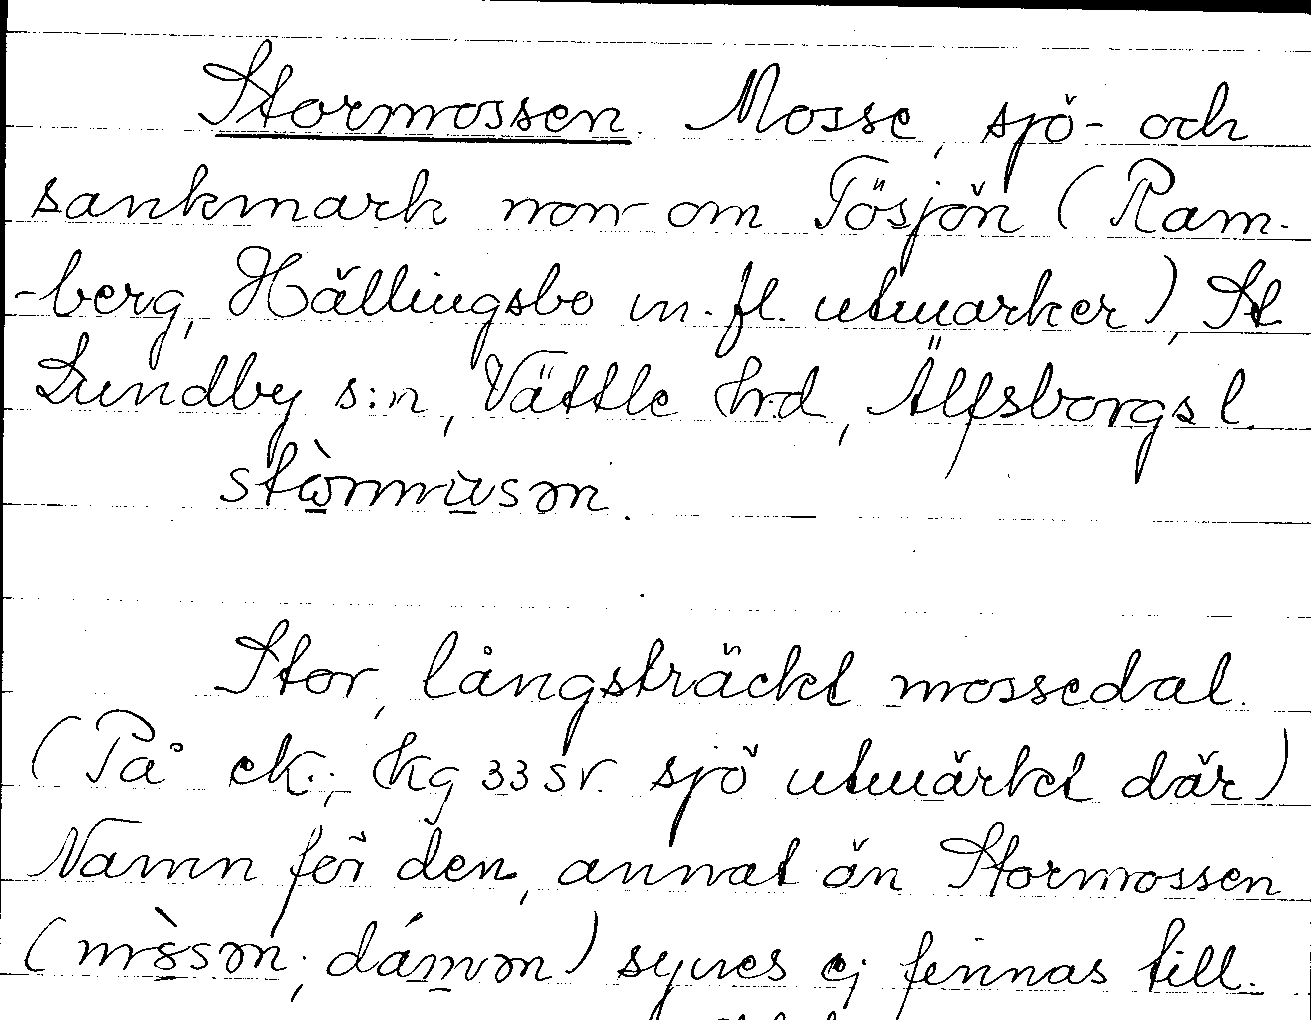 Stormossen. Mosse, sjö- och
sankmark norr om Tösjön (Ram-
-berg, Hällingsbo m. fl. utmarker), St
Lundby s:n, Vättle hrd, Älfsborgs l.
stòrmmusən.
Stor, långsträckt mossedal.
(På ek.; kg 33 sv. sjö utmärkt där)
Namn för den, annat än Stormossen
(        ) synes ej finnas till.